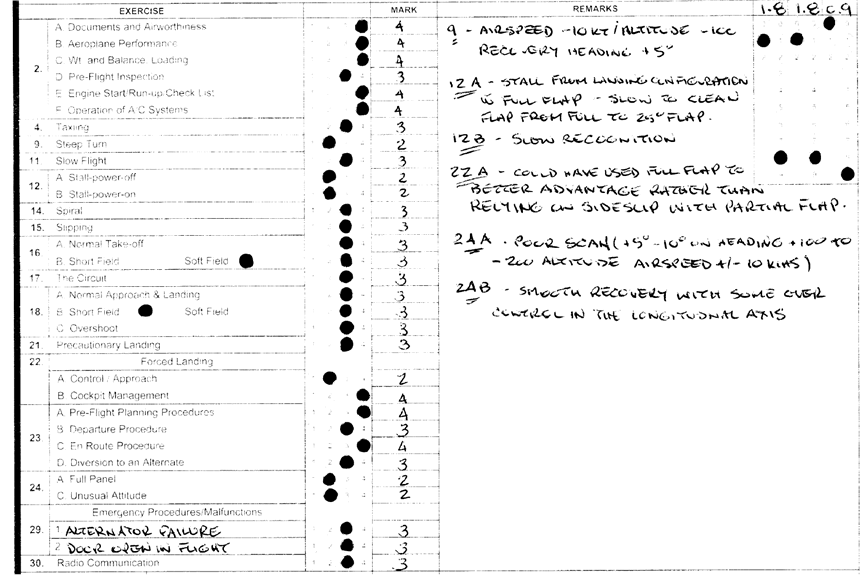 EXERCISE MARK REMARKS 1-8 1-8 C.9
2. A. Documents and Airworthiness 4
B. Aeroplane Performance 4
C. Wt. and Balance, Loading 4
D. Pre-Flight Inspection 3
E. Engine Start/Run-up Check List 4
F. Operation of A/C Systems 4
4. Taxiing 3
9. Steep Turn 2
11. Slow Flight 3
12. A. Stall-power-off 2
B. Stall-power-on 2
14. Spiral 3
15. Slipping 3
16 A. Normal Take-off 3
B. Short Field Soft Field 3
17. The Circuit 3
18. A. Normal Approach & Landing 3
B. Short Field Soft Field 3
C. Overshoot 3
21. Precautionary Landing 3
22. Forced Landing
A. Control / Approach 2
B. Cockpit Management 4
23. A. Pre-Flight Planning Procedures 4
B. Departure Procedure 3
C. En Route Procedure 4
D. Diversion to an Alternate 3
24. A. Full Panel 2
C. Unusual Attitude 2
Emergency Procedures/Malfunctions
29. 1 ALTERNATOR FAILURE 3
2 DOOR OPEN IN FLIGHT 3
30. Radio Communication 3
9 - AIRSPEED -10KT/ALTITUDE -100
RECOVERY HEADING +5°
12A - STALL FROM LANDING CONFIGURATION
W FULL FLAP - SLOW TO CLEAN
FLAP FROM FULL TO 25° FLAP.
12B - SLOW RECOGNITION
22A - COULD HAVE USED FULL FLAP TO
BETTER ADVANTAGE RATHER THAN
RELYING ON SIDESLIP WITH PARTIAL FLAP.
24A - POOR SCAN (+5° -10° ON HEADING +100 TO
-200 ALTITUDE AIRSPEED +/- 10 KIAS)
24B - SMOOTH RECOVERY WITH SOME OVER
CONTROL IN THE LONGITUDNAL AXIS